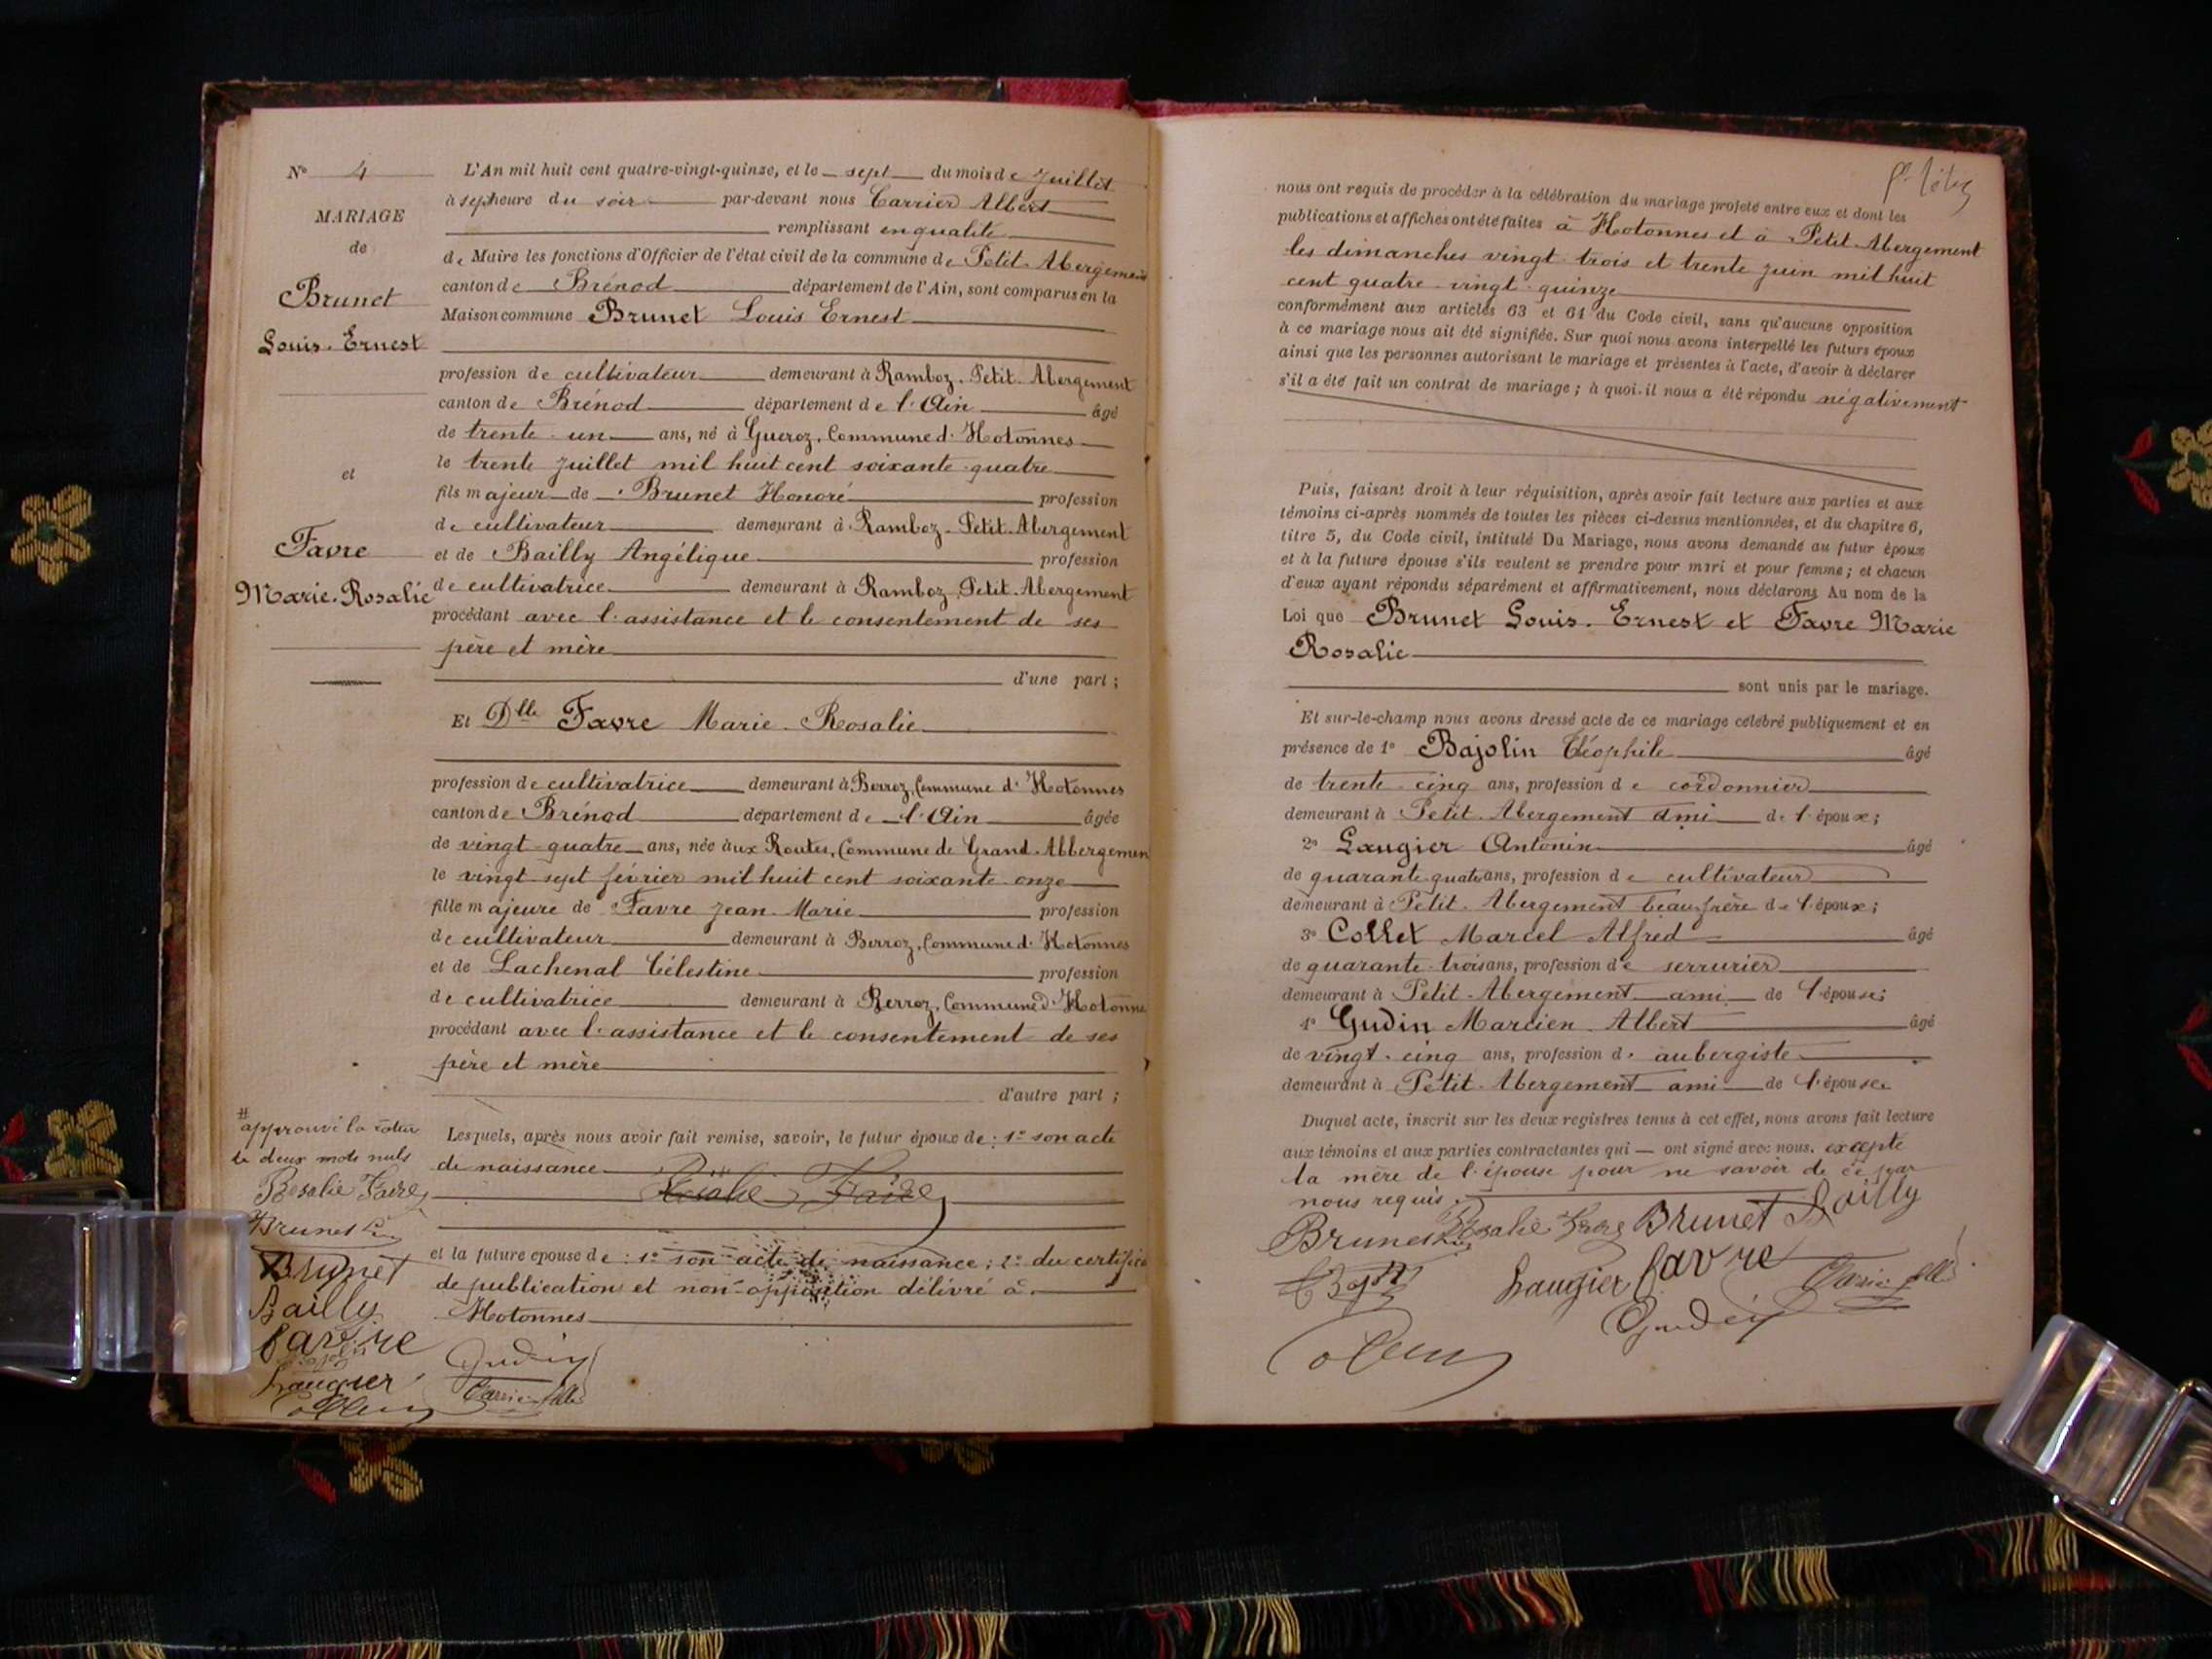 N° 4
MARIAGE
de
Brunet
Louis-Ernest
et
Favre
Marie-Rosalie
L'An mil huit cent quatre-vingt-quinze, et le sept du mois de Juillet
à sept heure du soir par-devant nous Carrier Albert
remplissant en qualité
de Maire les fonctions d'Officier de l'état civil de la commune de Petit-Abergement
canton de Brénod département de l'Ain, sont comparus en la
Maison commune Brunet Louis Ernest
profession de cultivateur demeurant à Ramboz-Petit-Abergement
canton de Brénod département de l'Ain âgé
de trente-un ans, né à Gueroz, Commune d'Hotonnes
le trente Juillet mil huit cent soixante-quatre
fils majeur de Brunet Honoré profession
de cultivateur demeurant à Ramboz-Petit-Abergement
et de Bailly Angélique profession
de cultivatrice demeurant à Ramboz, Petit-Abergement
procédant avec l'assistance et le consentement de ses
père et mère
d'une part;
Et Dlle Favre Marie-Rosalie
profession de cultivatrice demeurant à Berroz, Commune d'Hotonnes
canton de Brénod département de l'Ain âgée
de vingt-quatre ans, née aux Routes, Commune de Grand-Abbergemen
le vingt-sept février mil huit cent soixante-onze
fille majeure de Favre Jean-Marie profession
de cultivateur demeurant à Berroz, Commune d'Hotonnes
et de Lachenal Célestine profession
de cultivatrice demeurant à Berroz, Commune d'Hotonne
procédant avec l'assistance et le consentement de ses
père et mère
d'autre part;
Lesquels, après nous avoir fait remise, savoir, le futur époux de: 1° son acte
de naissance
Rosalie Favre
et la future épouse de: 1° son acte de naissance; 2° du certifica
de publications et non-opposition délivré à
Hotonnes
# approuvé la
de deux mots nuls
Rosalie Favre
Brunet
Brunet
Bailly
favre
Laugier
Gudin
nous ont requis de procéder à la célébration du mariage projeté entre eux et dont les
publications et affiches ont été faites à Hotonnes et à Petit-Abergement
les dimanches vingt-trois et trente juin mil huit
cent quatre-vingt-quinze
conformément aux articles 63 et 64 du Code civil, sans qu'aucune opposition
à ce mariage nous ait été signifiée. Sur quoi nous avons interpellé les futurs époux
ainsi que les personnes autorisant le mariage et présentes à l'acte, d'avoir à déclarer
s'il a été fait un contrat de mariage; à quoi il nous a été répondu négativement
Puis, faisant droit à leur réquisition, après avoir fait lecture aux parties et aux
témoins ci-après nommés de toutes les pièces ci-dessus mentionnées, et du chapitre 6,
titre 5, du Code civil, intitulé Du Mariage, nous avons demandé au futur époux
et à la future épouse s'ils veulent se prendre pour mari et pour femme; et chacun
d'eux ayant répondu séparément et affirmativement, nous déclarons Au nom de la
Loi que Brunet Louis-Ernest et Favre Marie
Rosalie
sont unis par le mariage.
Et sur-le-champ nous avons dressé acte de ce mariage célébré publiquement et en
présence de 1° Bajolin Céophile âgé
de trente-cinq ans, profession de cordonnier
demeurant à Petit-Abergement ami de l'époux;
2° Laugier Antonin âgé
de quarante-quatre ans, profession de cultivateur
demeurant à Petit-Abergement beau-frère de l'époux;
3° Collet Marcel Alfred âgé
de quarante-trois ans, profession de serrurier
demeurant à Petit-Abergement ami de l'épouse;
4° Gudin Marcien-Albert âgé
de vingt-cinq ans, profession d' aubergiste
demeurant à Petit-Abergement ami de l'épouse
Duquel acte, inscrit sur les deux registres tenus à cet effet, nous avons fait lecture
aux témoins et aux parties contractantes qui ont signé avec nous, excepté
la mère de l'épouse pour ne savoir de ce par
nous requis.
Brunet Rosalie Favre Brunet Bailly
Laugier favre
Gudin